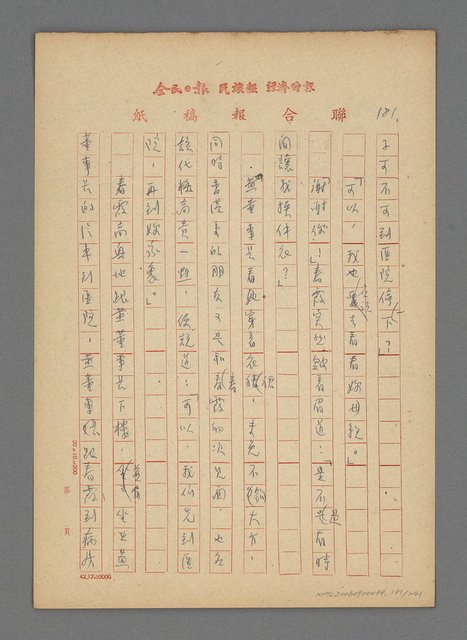 全民日報 民族報 經濟時報
聯合報稿紙
181.
子可不可到醫院停一下？」
「可以，我也應該去看看妳母親。」
「謝謝你！」春霞突然皺着眉道：「是不是有時
間讓我換件衣？」
黃董事長看她穿着衣裙，未免不夠大方，
同時香港的朋友又是和春霞的次見面，也應
該代極高貴一點，便說道：「可以，我們先到醫
院，再到妳家裏。」
春霞高興地跟黃董事長下樓，坐上黃
董事長的汽車到醫院。黃董事長跟春霞到病房
20×10=200
第 頁
42.12.20000
NMTL20060900088, 181/241